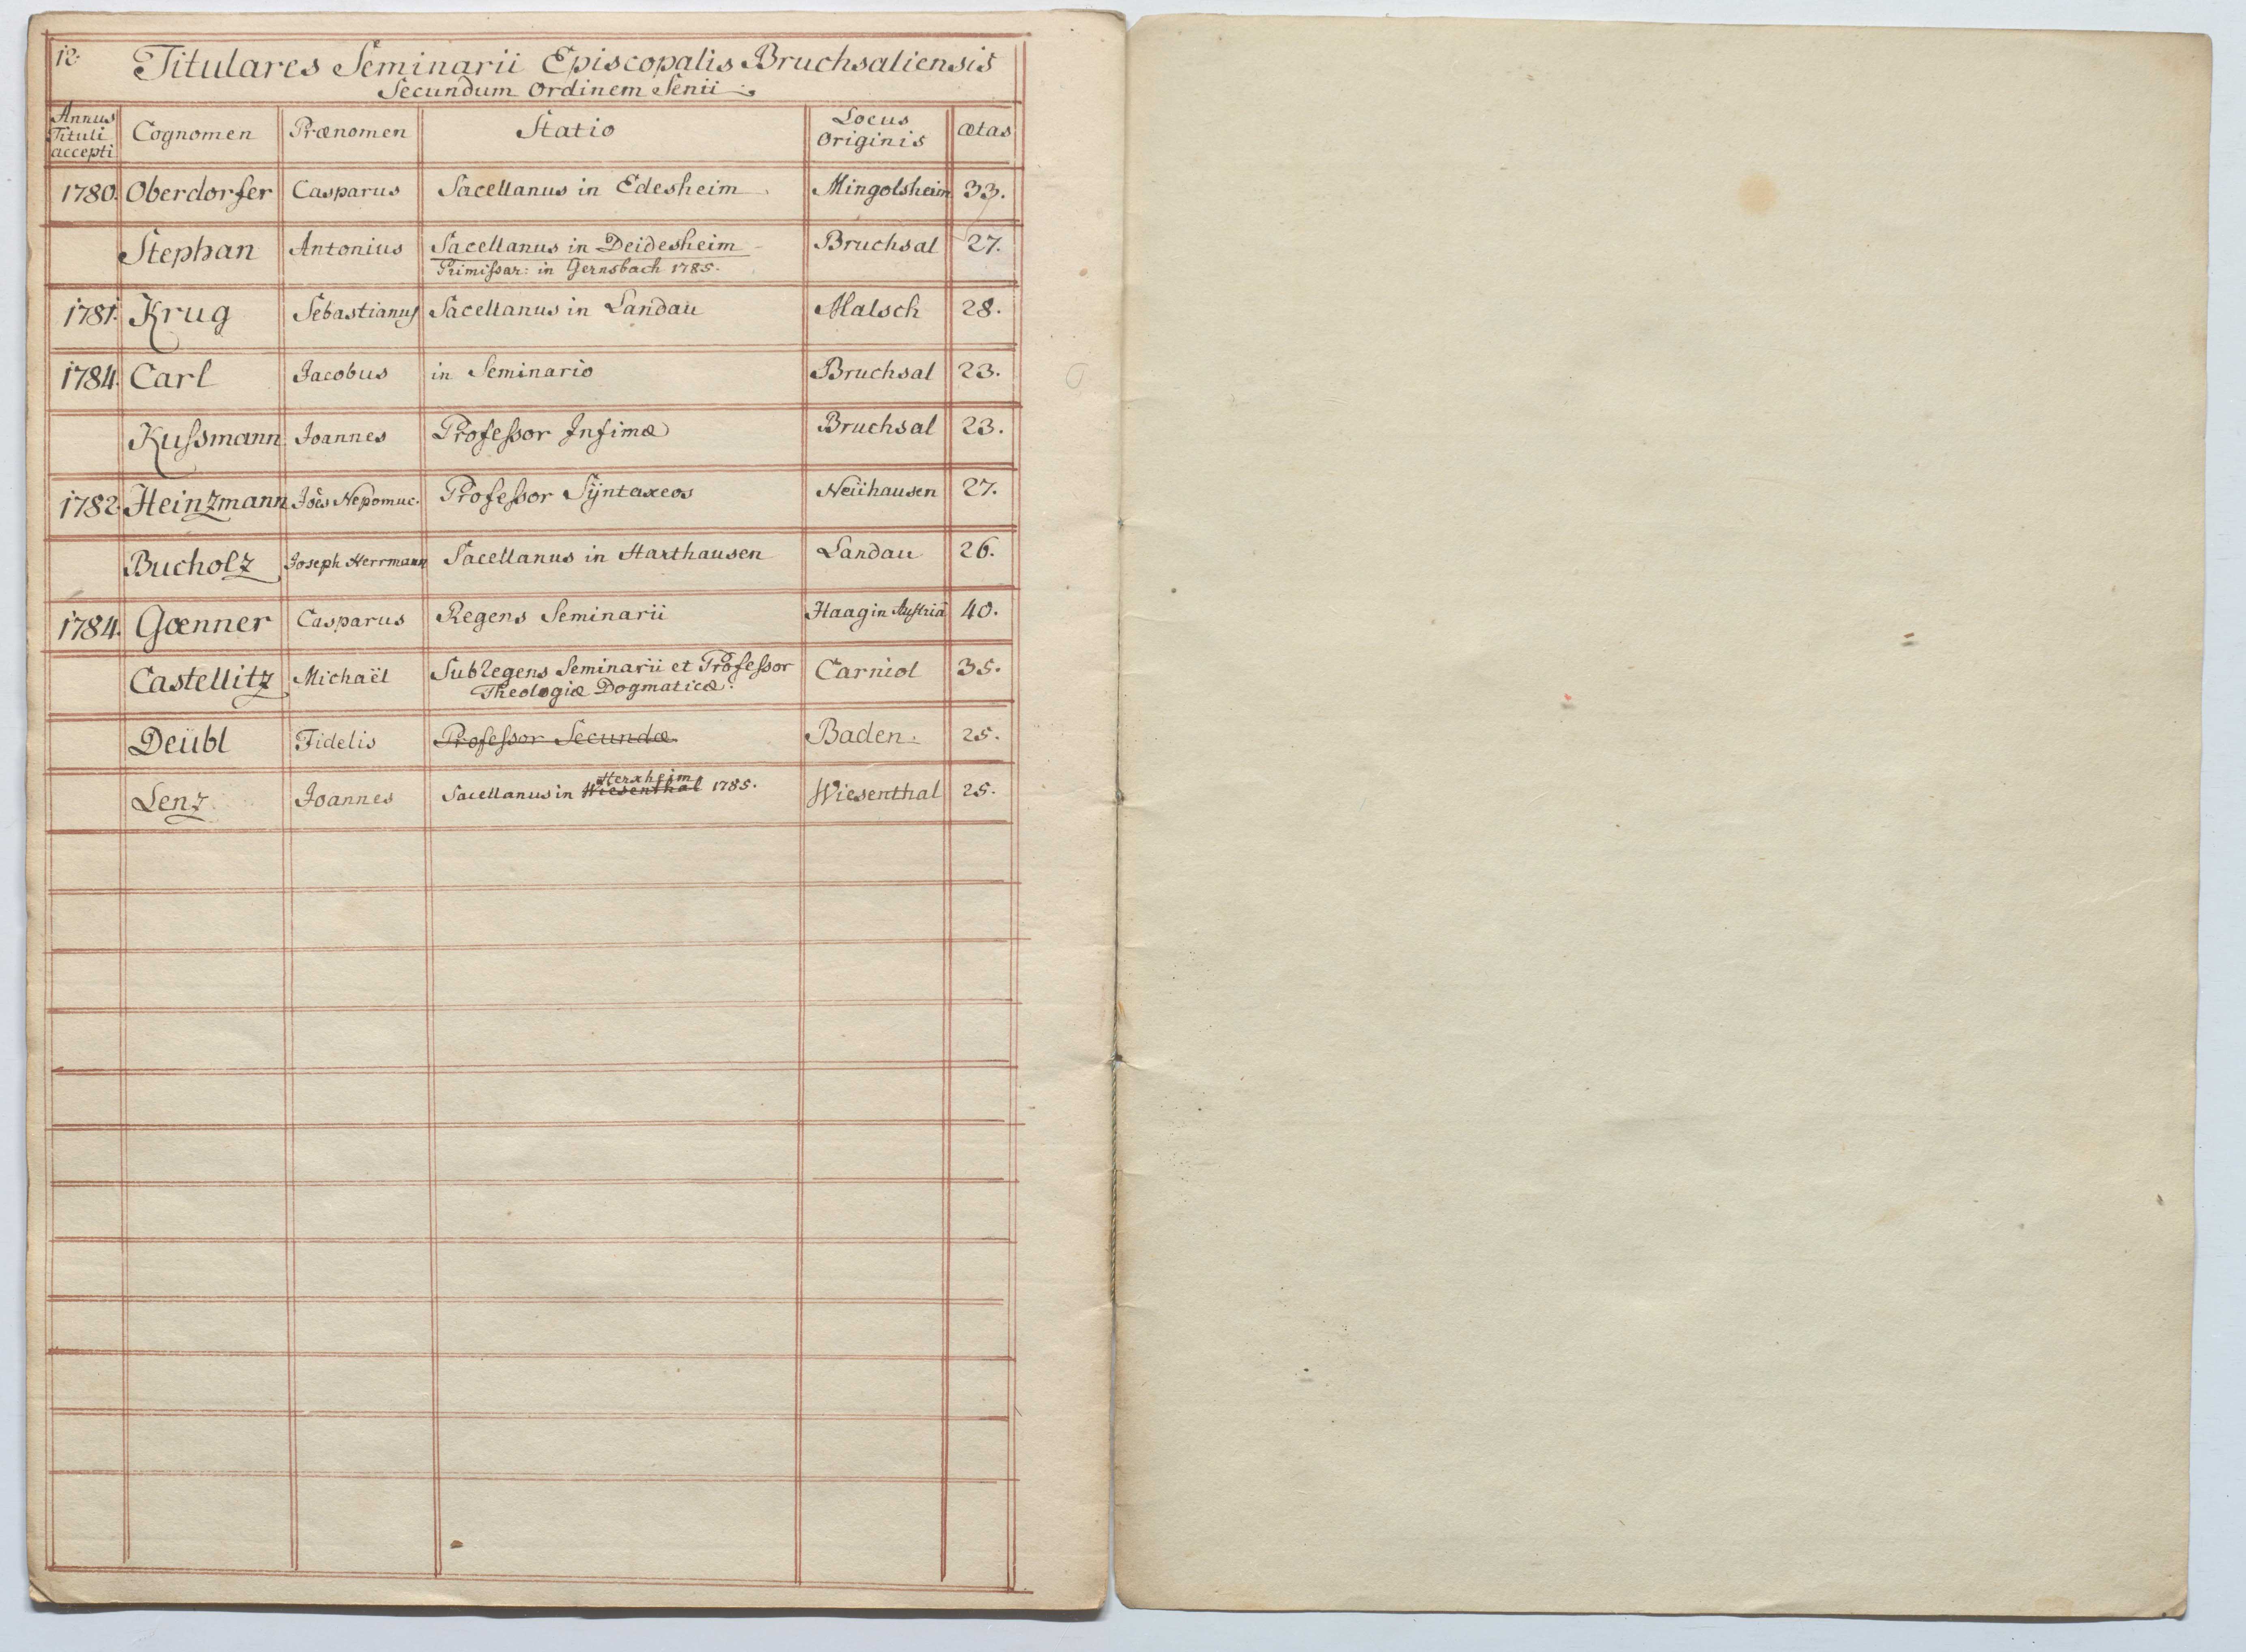 12.
Titulares Seminarii Episcopalis Bruchsaliensis
Secundum Ordinem Senii
Annus Tituli accepti Cognomen Prænomen Statio Locus Originis ætas
1780. Oberdorfer Casparus Sacellanus in Edesheim Mingolsheim 33.
Stephan Antonius Sacellanus in Deidesheim Bruchsal 27.
Primißar: in Gernsbach 1785.
1781. Krug Sebastianus Sacellanus in Landau Malsch 28.
1784. Carl Jacobus in Seminario Bruchsal 23.
Kußmann Joannes Profeßor Infimæ Bruchsal 23.
1782. Heinzmann Joês Nepomuc. Profeßor Sÿntaxeos Neühausen 27.
Bucholz Joseph Herrmann Sacellanus in Harthausen Landau 26.
1784. Gœnner Casparus Regens Seminarii Haag in Austria 40.
Castellitz Michaël Subregens Seminarii et Profeßor Carniol 35.
Theologiæ Dogmaticæ.
Deübl Fidelis Profeßor Secundæ Baden. 25.
Herxheim
Lenz Joannes Sacellanus in Wiesenthal 1785. Wiesenthal 25.